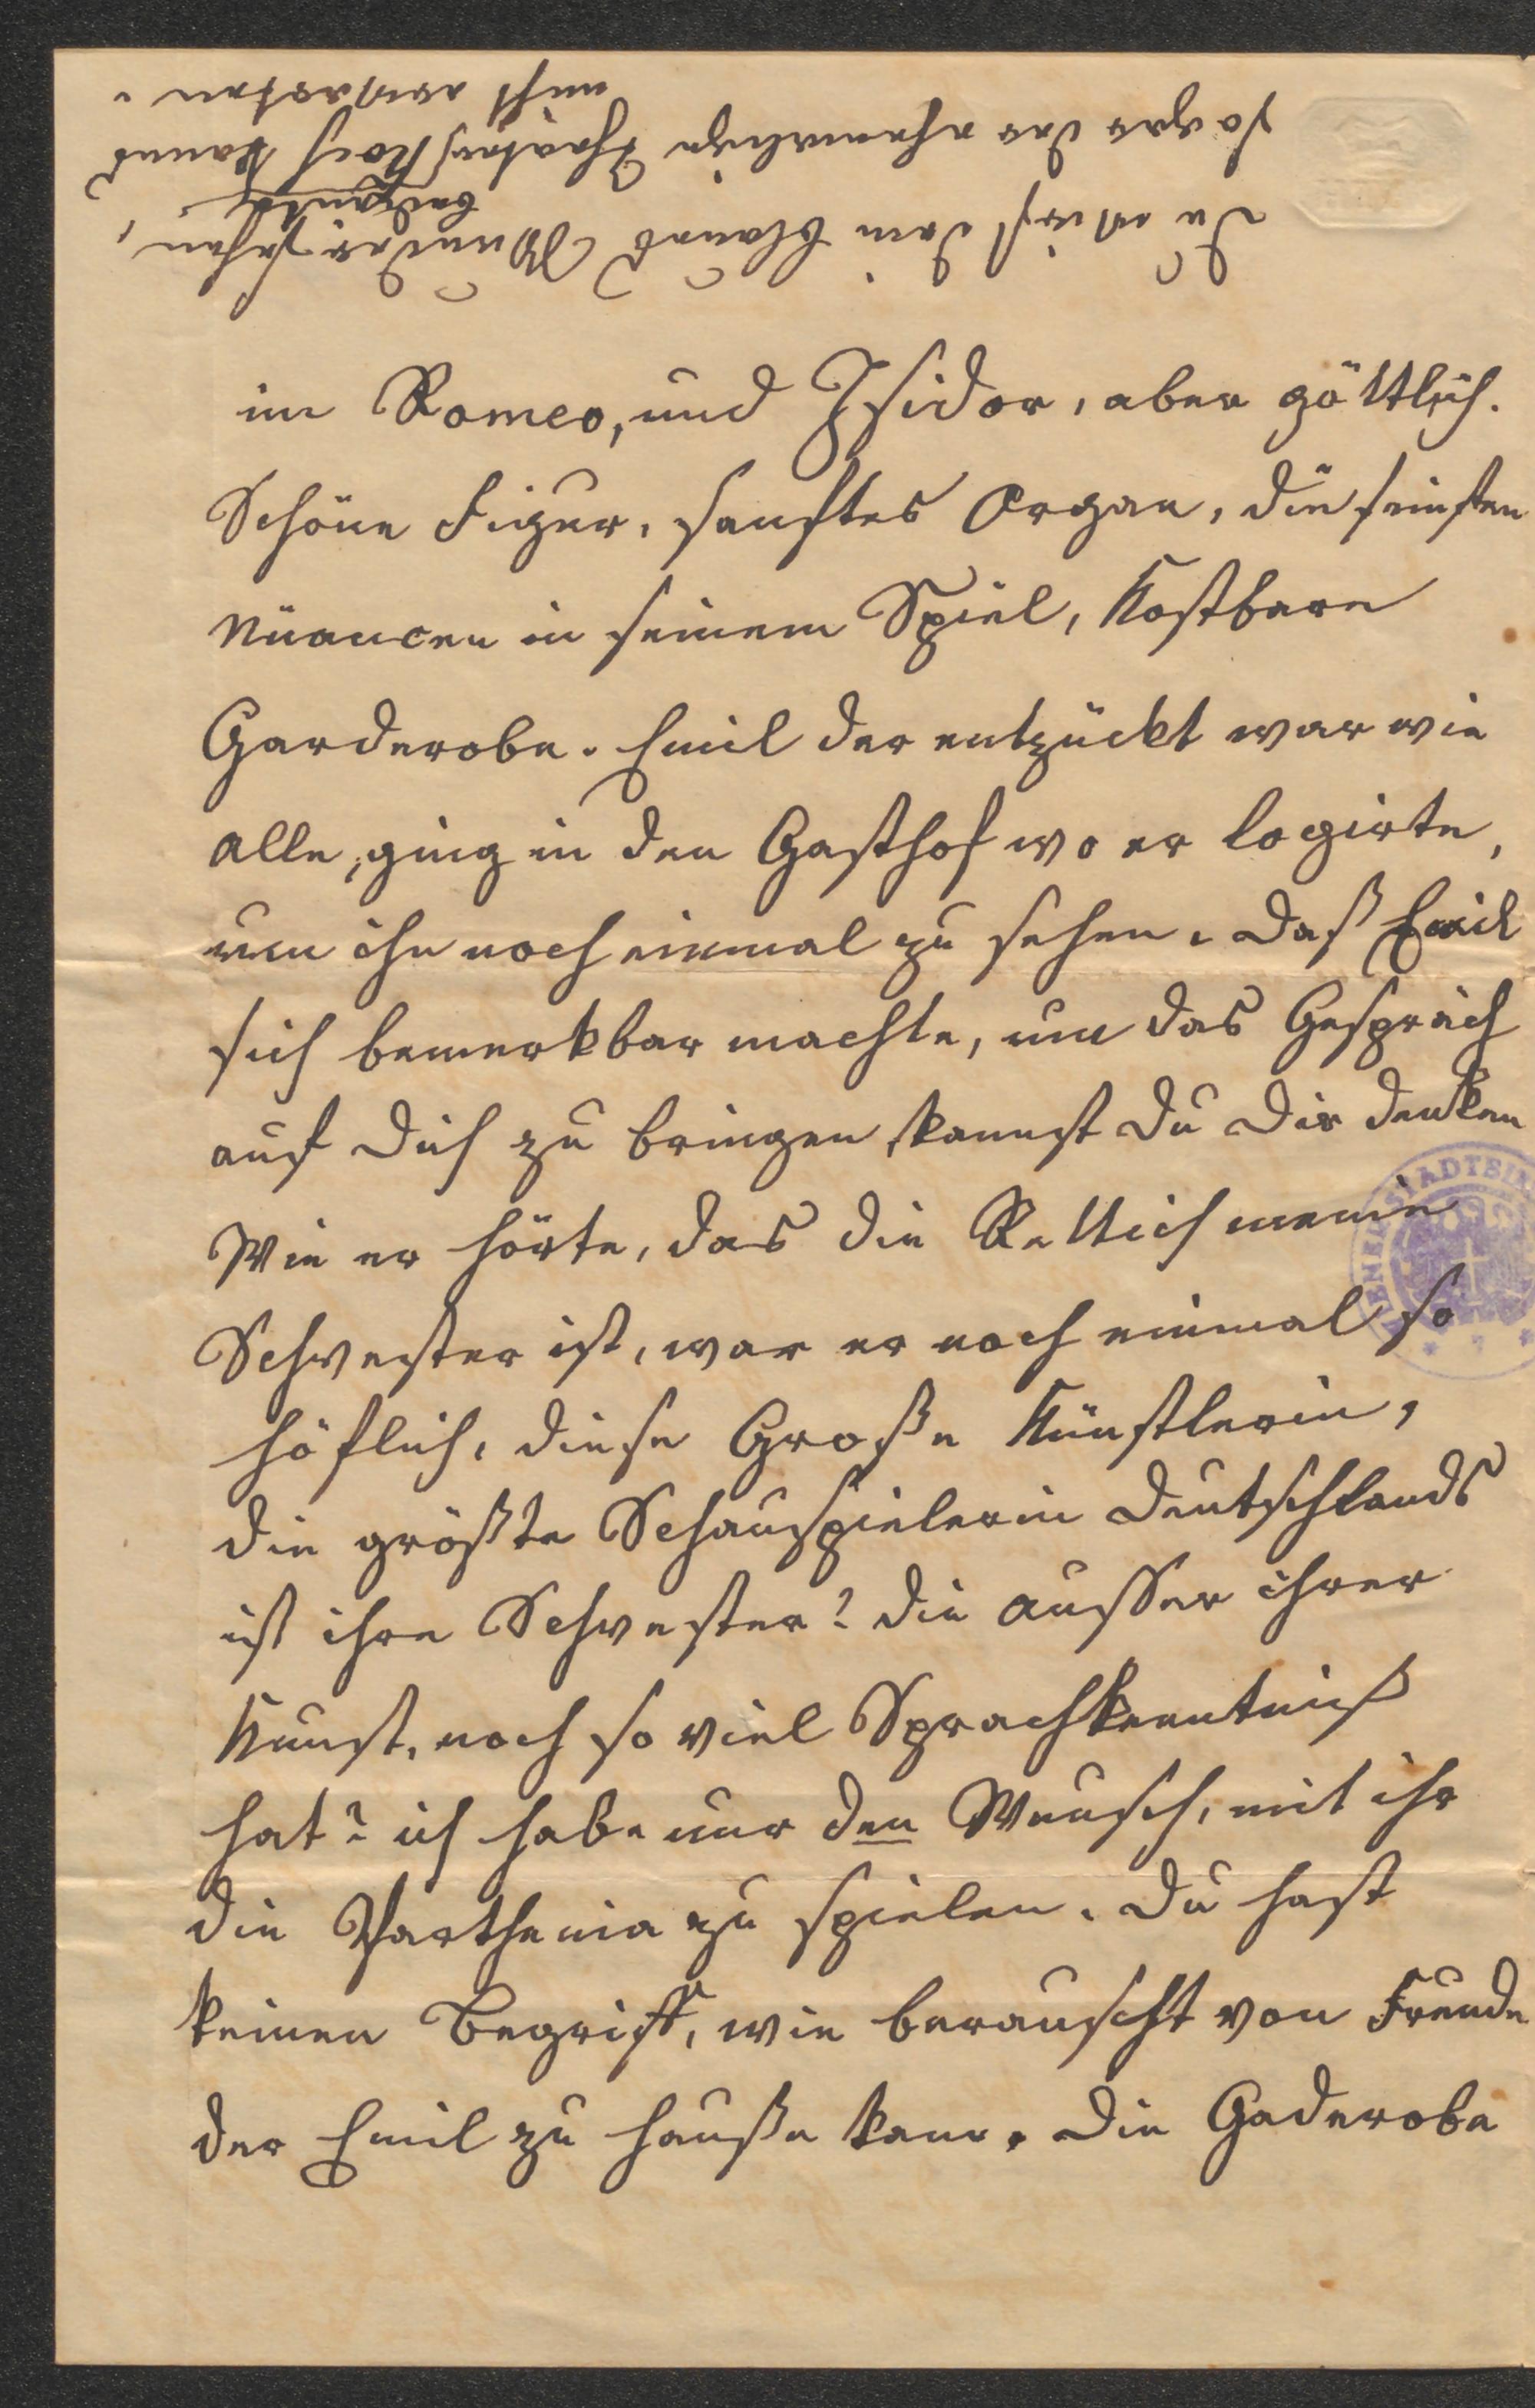 Du wirst dein blaues Wunder sehen,
sogar der ehemalige Theater Koch kann es
nicht erwarten.
im Romeo, und Isidor, aber göttlich.
Schöne Figur, sanftes Organ, die feinsten
Nüancen in seinem Spiel, Kostbare
Garderobe. Emil der entzückt war wie
alle, ging in den Gasthof wo er logirte,
um ihn noch einmal zu sehen. daß Emil
sich bemerkbar machte, um das Gespräch
auf dich zu bringen, kannst du dir denken
Wie er hörte, das die Rettich meine
Schwester ist, war er noch einmal so
höflich, diese Große Künstlerin,
die größte Schauspielerin Deutschlands
ist ihre Schwester? die ausser ihrer
Kunst, noch so viel Sprachkenntniß
hat? ich habe nur den Wunsch, mit ihr
die Parthenia zu spielen. Du hast
keinen Begriff, wie berauscht von Freude
der Emil zu Hauße kam. Die Gaderobe